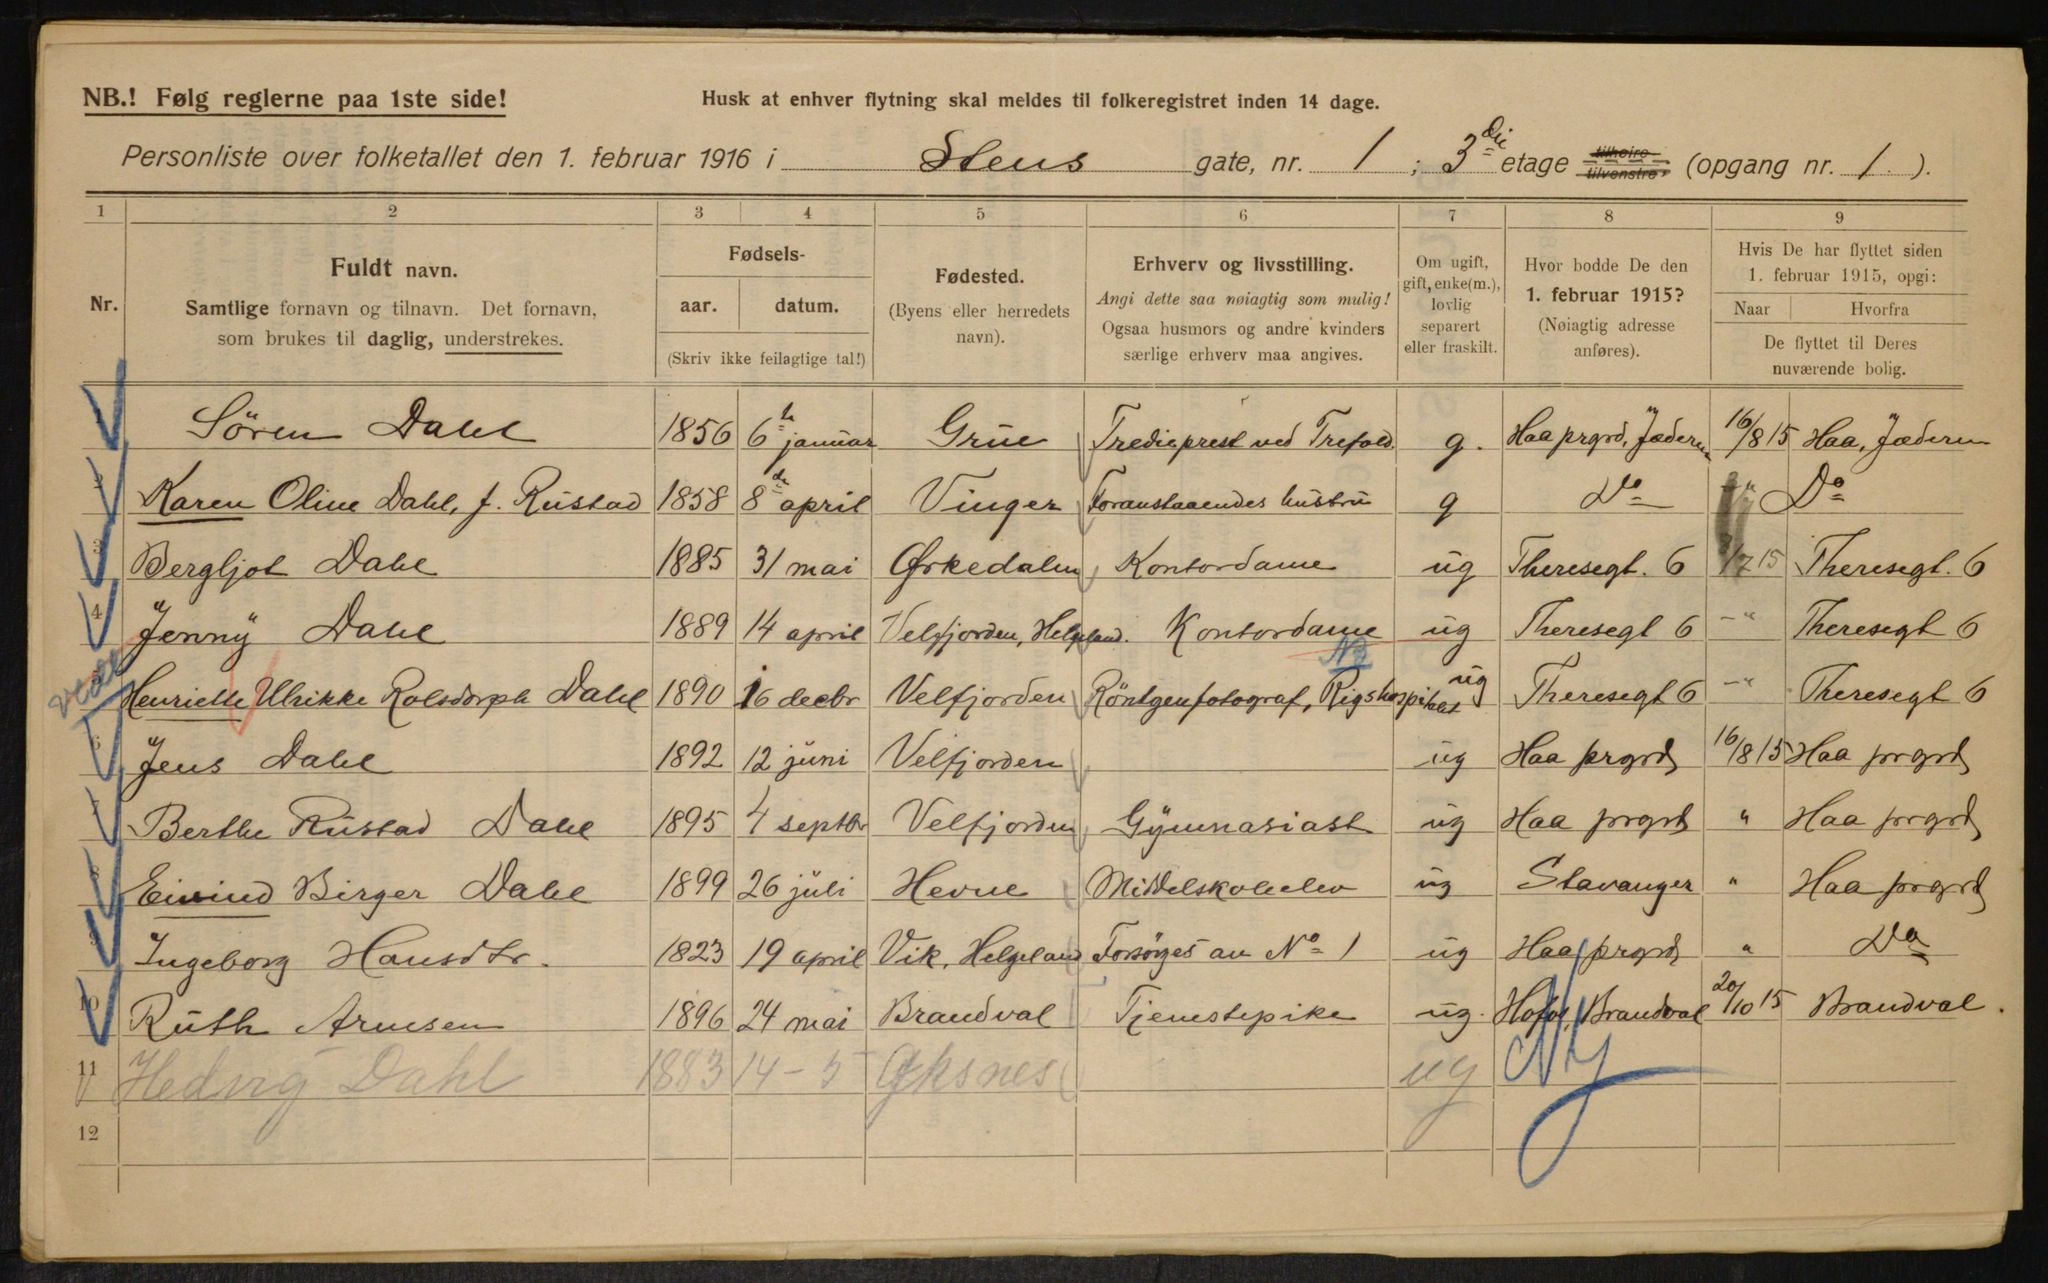 NB.! Følg reglerne paa 1ste side!
Husk at enhver flytning skal meldes til folkeregistret inden 14 dage.
Personliste over folketallet den 1. februar 1916 i Stens gate, nr. 1; 3die etage tilhøire tilvenstre, (opgang nr. 1).
1 2 3 4 5 6 7 8 9
Nr.
Fuldt navn.
Samtlige fornavn og tilnavn. Det fornavn,
som brukes til daglig, understrekes.
Fødsels-
aar. datum.
(Skriv ikke feilagtige tal!)
Fødested.
(Byens eller herredets
navn).
Erhverv og livsstilling.
Angi dette saa nøiagtig som mulig!
Ogsaa husmors og andre kvinders
særlige erhverv maa angives.
Om ugift,
gift, enke(m.),
lovlig
separert
eller fraskilt.
Hvor bodde De den
1. februar 1915?
(Nøiagtig adresse
anføres).
Hvis De har flyttet siden
1. februar 1915, opgi:
Naar Hvorfra
De flyttet til Deres
nuværende bolig.
Sören Dahl 1856 6te januar Grue Tredieprest ved Trefold. g. Haa prgrd, Jæderen 16/8 15 Haa, Jæderen
Karen Oline Dahl, f. Rustad 1858 8de april Vinger Foranstaaendes hustru g Do " Do
3 Bergljot Dahl 1885 31 mai Ørkedalen Kontordame ug Theresegt. 6 15 Theresegt. 6
4 Jenny Dahl 1889 14 april Velfjorden, Helgeland. Kontordame ug Theresegt 6 -"- Theresegt 6
NB
5 Henriette Ulrikke Rolsdorph Dahl 1890 16 decbr Velfjorden Röntgenfotograf, Rigshospitalet ug Theresegt 6 -"- Theresegt 6
6 Jens Dahl 1892 12 juni Velfjorden ug Haa prgrd 16/8 15 Haa prgrd
7 Berthe Rustad Dahl 1895 4 septbr Velfjorden Gymnasiast ug Haa prgrd " Haa prgrd
8 Eivind Birger Dahl 1899 26 juli Hevne Middelskoleelev ug Stavanger " Haa prgrd
9 Ingeborg Hansdtr. 1823 19 april Vik, Helgeland Forsörges av No 1 ug Haa prgrd " Do
10 Ruth Arnesen 1896 24 mai Brandval Tjenestepike ug. Hofos, Brandval 20/10 15 Brandval.
11 Hedvig Dahl 1883 14-5 Øksnes ug Ny
12